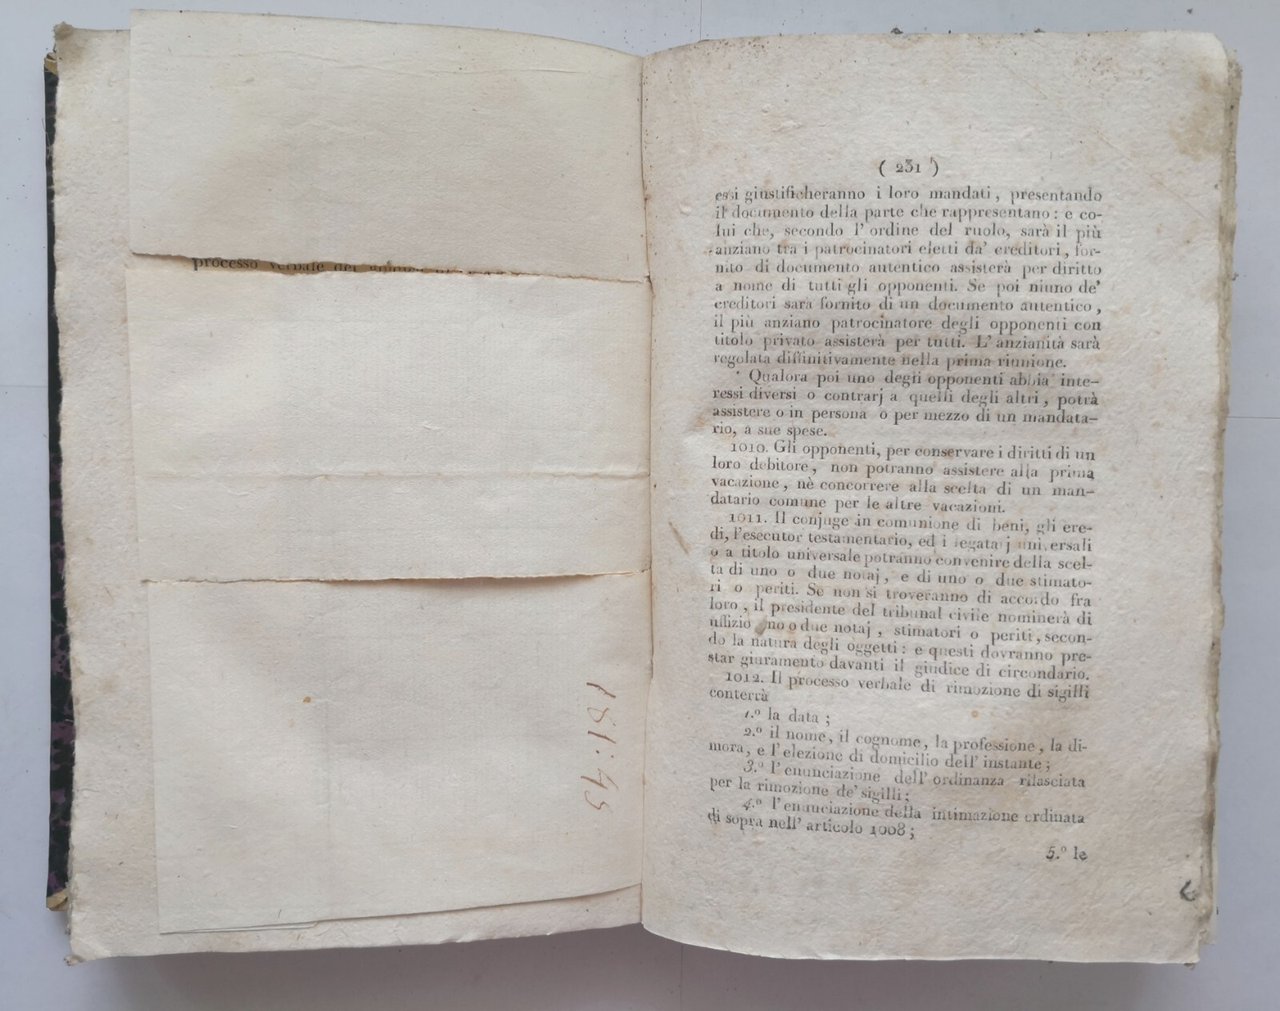 processo verbale del
181:45
( 231 )
essi giustificheranno i loro mandati, presentando
il documento della parte che rappresentano: e co-
lui che, secondo l'ordine del ruolo, sarà il più
anziano tra i patrocinatori eletti da' creditori, for-
nito di documento autentico assisterà per diritto
a nome di tutti gli opponenti. Se poi niuno de'
creditori sarà fornito di un documento autentico,
il più anziano patrocinatore degli opponenti con
titolo privato assisterà per tutti. L'anzianità sarà
regolata diffinitivamente nella prima riunione.
Qualora poi uno degli opponenti abbia inte-
ressi diversi o contrarj a quelli degli altri, potrà
assistere o in persona o per mezzo di un mandata-
rio, a sue spese.
1010. Gli opponenti, per conservare i diritti di un
loro debitore, non potranno assistere alla prima
vacazione, nè concorrere alla scelta di un man-
datario comune per le altre vacazioni.
1011. Il conjuge in comunione di beni, gli ere-
di, l'esecutor testamentario, ed i legatarj universali
o a titolo universale potranno convenire della scel-
ta di uno o due notaj, e di uno o due stimato-
ri o periti. Se non si troveranno di accordo fra
loro, il presidente del tribunal civile nominerà di
uffizio uno o due notaj, stimatori o periti, secon-
do la natura degli oggetti: e questi dovranno pre-
star giuramento davanti il giudice di circondario.
1012. Il processo verbale di rimozione di sigilli
conterrà
1.º la data;
2.º il nome, il cognome, la professione, la di-
mora, e l'elezione di domicilio dell'instante;
3.º l'enunciazione dell'ordinanza rilasciata
per la rimozione de' sigilli;
4.º l'enunciazione della intimazione ordinata
di sopra nell'articolo 1008;
5.º le